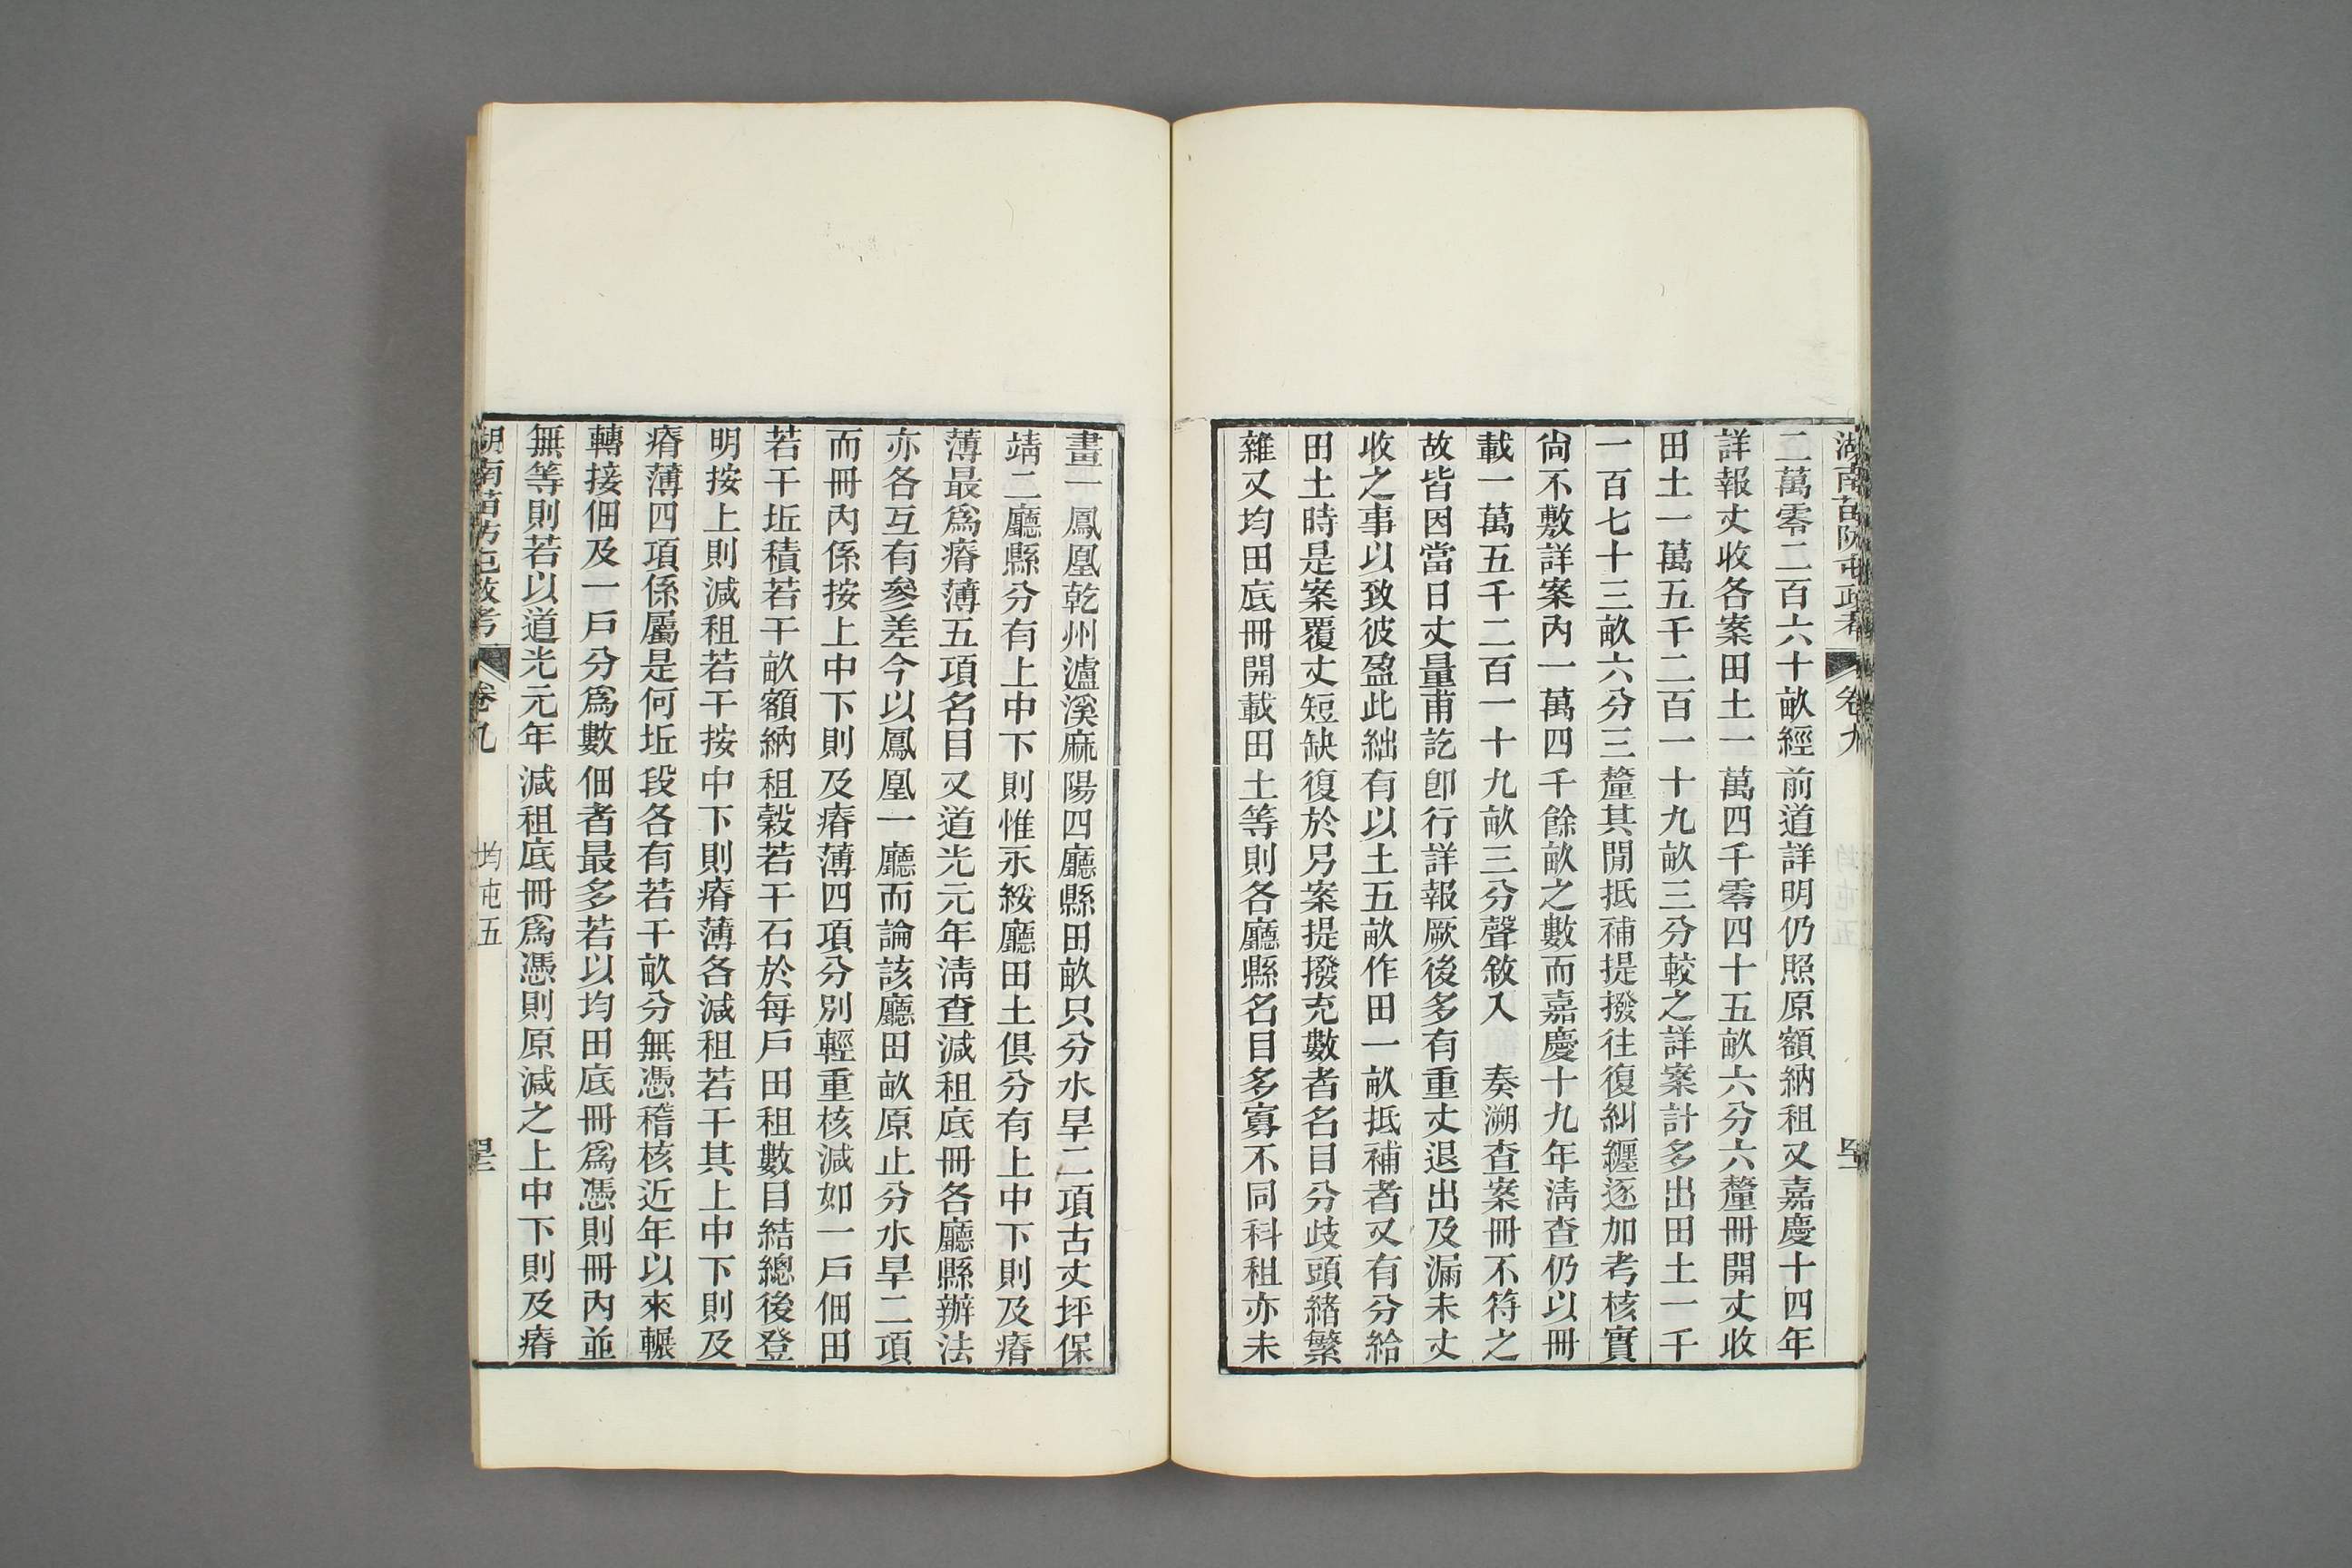 湖南苗防屯政考 卷九
二萬零二百六十畝經前道詳明仍照原額納租又嘉慶十四年
詳報丈收各案田土一萬四千零四十五畝六分六釐冊開丈收
田土一萬五千二百一十九畝三分較之詳案計多出田土一千
一百七十三畝六分三釐其閒抵補提撥往復糾纏逐加考核實
尚不敷詳案內一萬四千餘畝之數而嘉慶十九年清查仍以冊
載一萬五千二百一十九畝三分聲敘入 奏溯查案冊不符之
故皆因當日丈量甫訖卽行詳報厥後多有重丈退出及漏未丈
收之事以致彼盈此絀有以土五畝作田一畝抵補者又有分給
田土時是案覆丈短缺復於另案提撥充數者名目分歧頭緒繁
雜又均田底冊開載田土等則各廳縣名目多寡不同科租亦未
畫一鳳凰乾州瀘溪麻陽四廳縣田畝只分水旱二項古丈坪保
靖二廳縣分有上中下則惟永綏廳田土俱分有上中下則及瘠
薄最爲瘠薄五項名目又道光元年清查減租底冊各廳縣辦法
亦各互有參差今以鳳凰一廳而論該廳田畝原止分水旱二項
而冊內係按上中下則及瘠薄四項分別輕重核減如一戶佃田
若干坵積若干畝額納租穀若干石於每戶田租數目結總後登
明按上則減租若干按中下則瘠薄各減租若干其上中下則及
瘠薄四項係屬是何坵段各有若干畝分無憑稽核近年以來輾
轉接佃及一戶分爲數佃者最多若以均田底冊爲憑則冊內並
無等則若以道光元年減租底冊爲憑則原減之上中下則及瘠
湖南苗防屯政考 卷九 均屯五